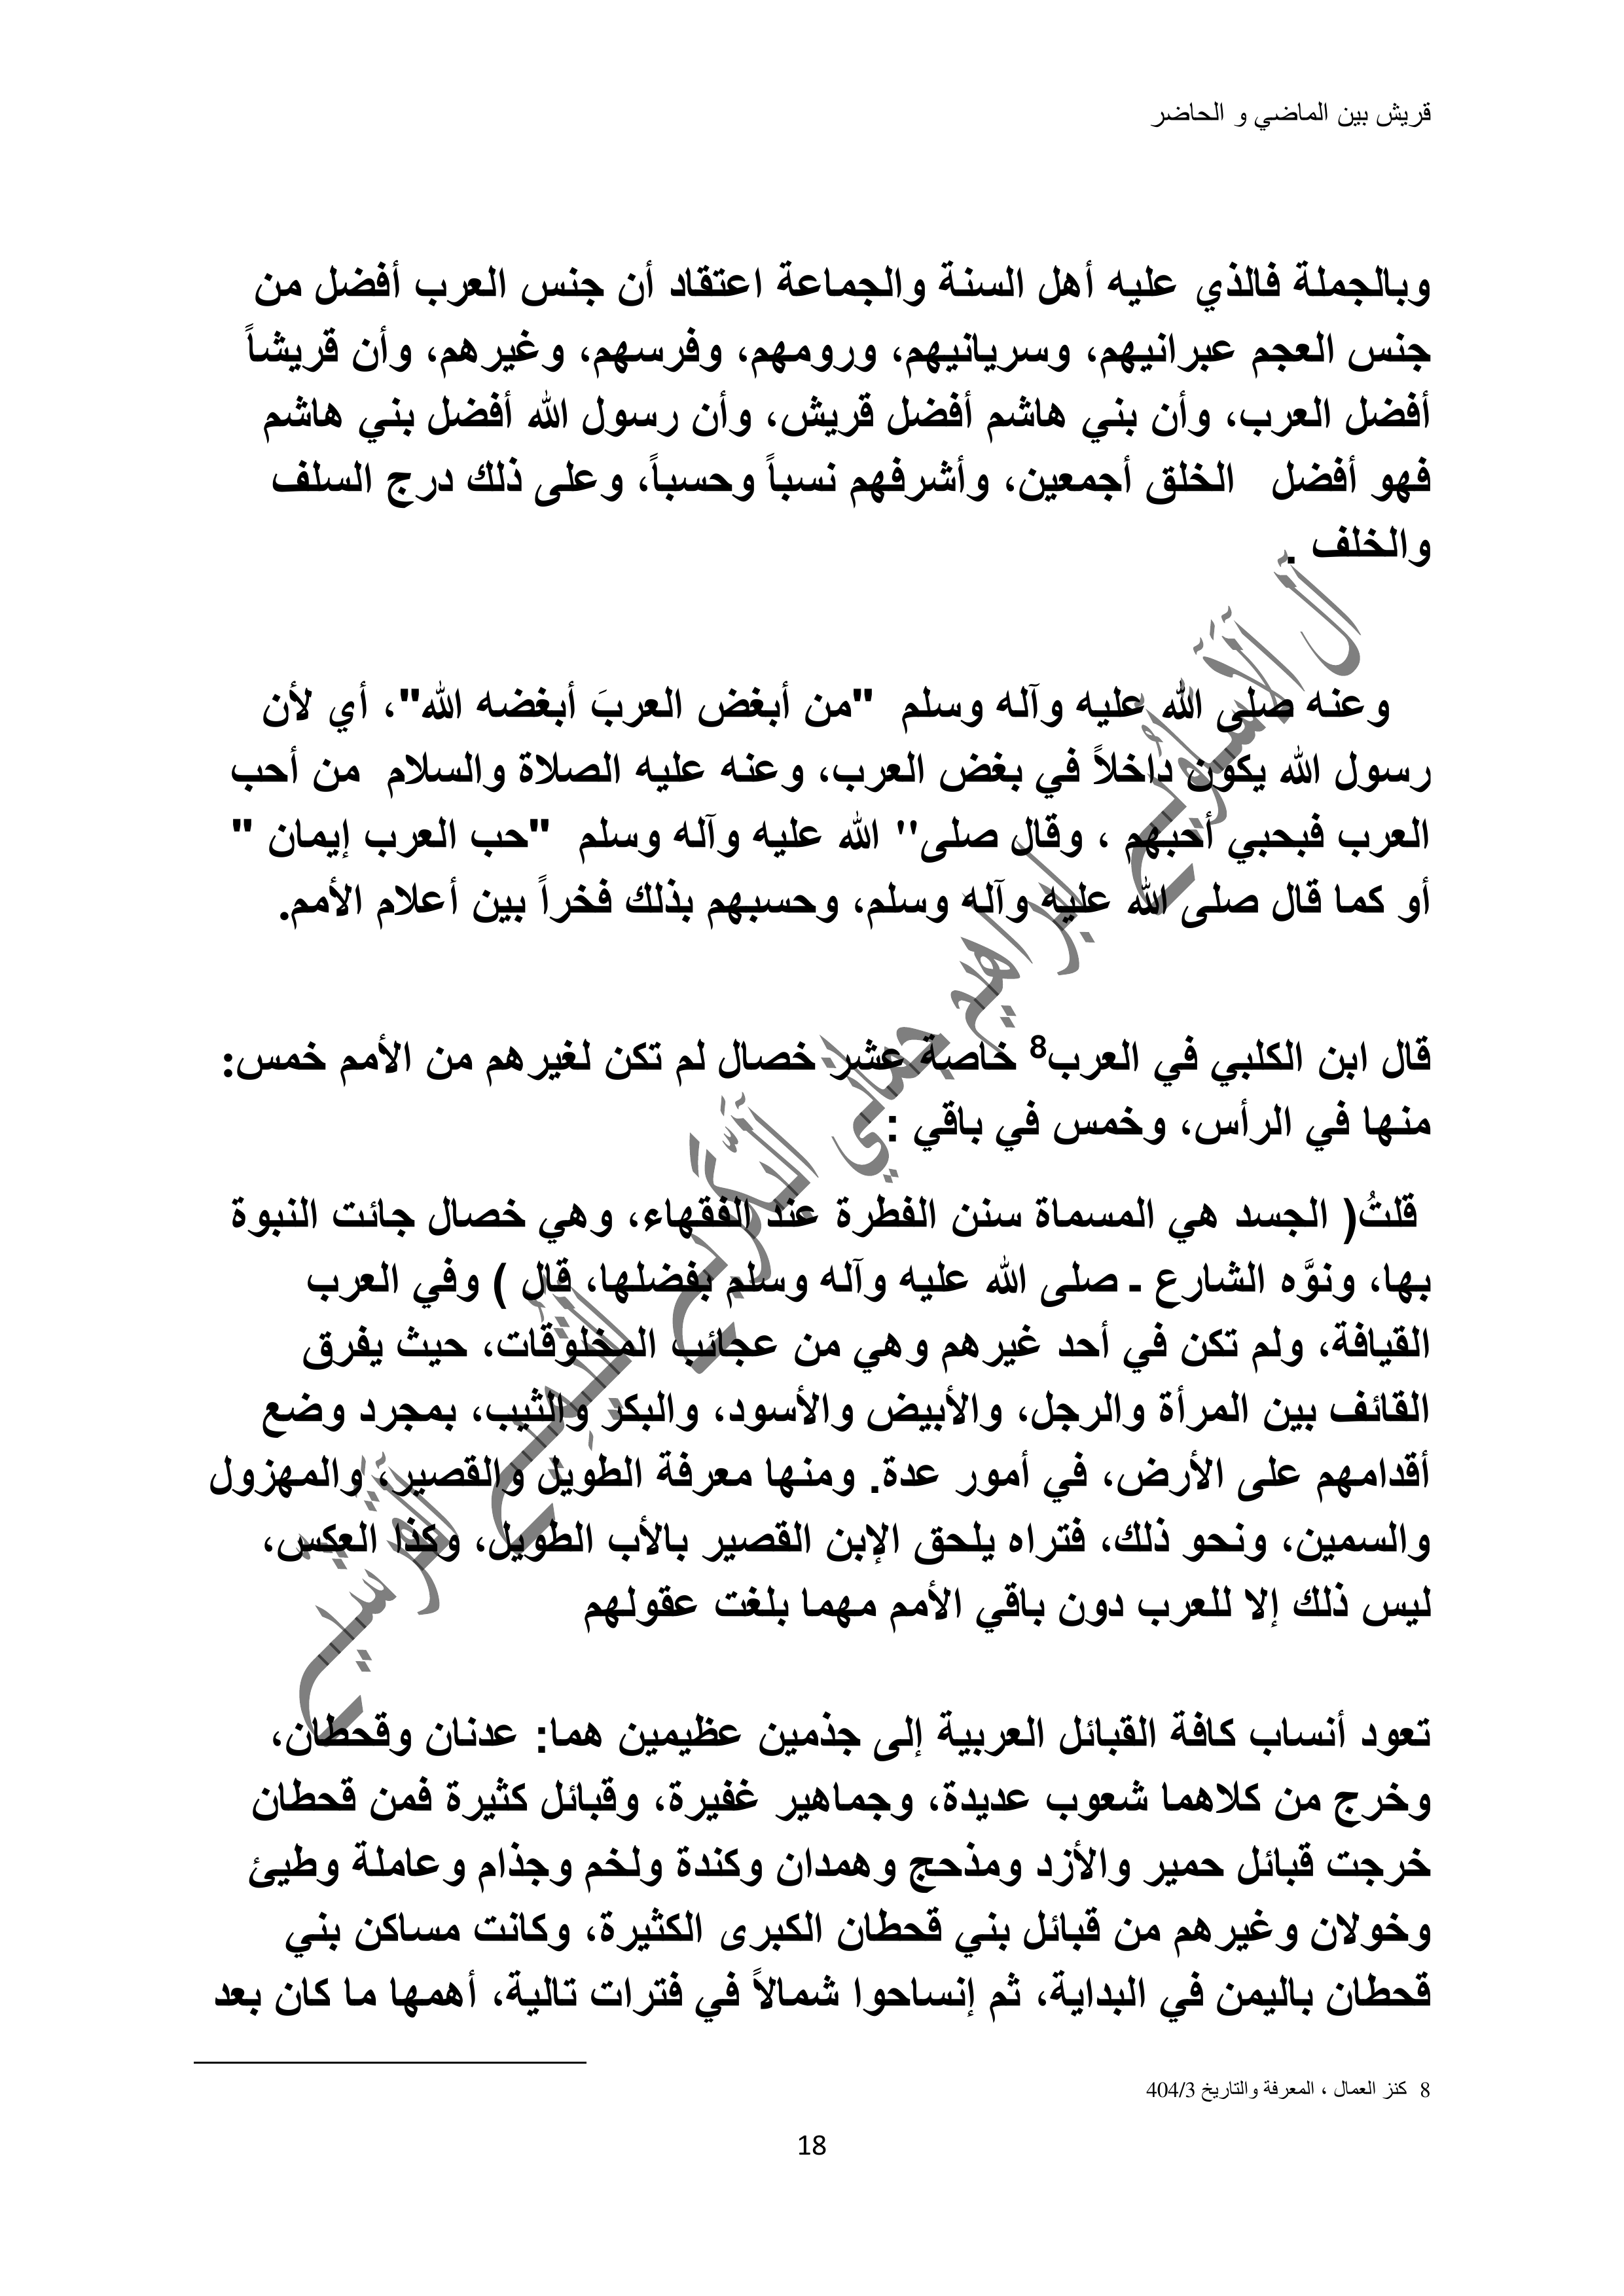 قريش بين الماضي و الحاضر
وبالجملة فالذي عليه أهل السنة والجماعة اعتقاد أن جنس العرب أفضل من
جنس العجم عبرانيهم، وسريانيهم، ورومهم، وفرسهم، وغيرهم، وأن قريشاً
أفضل العرب، وأن بني هاشم أفضل قريش، وأن رسول الله أفضل بني هاشم
فهو أفضل الخلق أجمعين، وأشرفهم نسباً وحسباً، وعلى ذلك درج السلف
والخلف .
وعنه صلى الله عليه وآله وسلم "من أبغض العربَ أبغضه الله"، أي لأن
رسول الله يكون داخلاً في بغض العرب، وعنه عليه الصلاة والسلام من أحب
العرب فبحبي أحبهم ، وقال صلى" الله عليه وآله وسلم "حب العرب إيمان "
أو كما قال صلى الله عليه وآله وسلم، وحسبهم بذلك فخراً بين أعلام الأمم.
قال ابن الكلبي في العرب8 خاصة عشر خصال لم تكن لغيرهم من الأمم خمس:
منها في الرأس، وخمس في باقي :
قلتُ( الجسد هي المسماة سنن الفطرة عند الفقهاء، وهي خصال جائت النبوة
بها، ونوَّه الشارع ـ صلى الله عليه وآله وسلم بفضلها، قال ) وفي العرب
القيافة، ولم تكن في أحد غيرهم وهي من عجائب المخلوقات، حيث يفرق
القائف بين المرأة والرجل، والأبيض والأسود، والبكر والثيب، بمجرد وضع
أقدامهم على الأرض، في أمور عدة. ومنها معرفة الطويل والقصير، والمهزول
والسمين، ونحو ذلك، فتراه يلحق الإبن القصير بالأب الطويل، وكذا العكس،
ليس ذلك إلا للعرب دون باقي الأمم مهما بلغت عقولهم
تعود أنساب كافة القبائل العربية إلى جذمين عظيمين هما: عدنان وقحطان،
وخرج من كلاهما شعوب عديدة، وجماهير غفيرة، وقبائل كثيرة فمن قحطان
خرجت قبائل حمير والأزد ومذحج وهمدان وكندة ولخم وجذام وعاملة وطيئ
وخولان وغيرهم من قبائل بني قحطان الكبرى الكثيرة، وكانت مساكن بني
قحطان باليمن في البداية، ثم إنساحوا شمالاً في فترات تالية، أهمها ما كان بعد
8 كنز العمال ، المعرفة والتاريخ 404/3
18